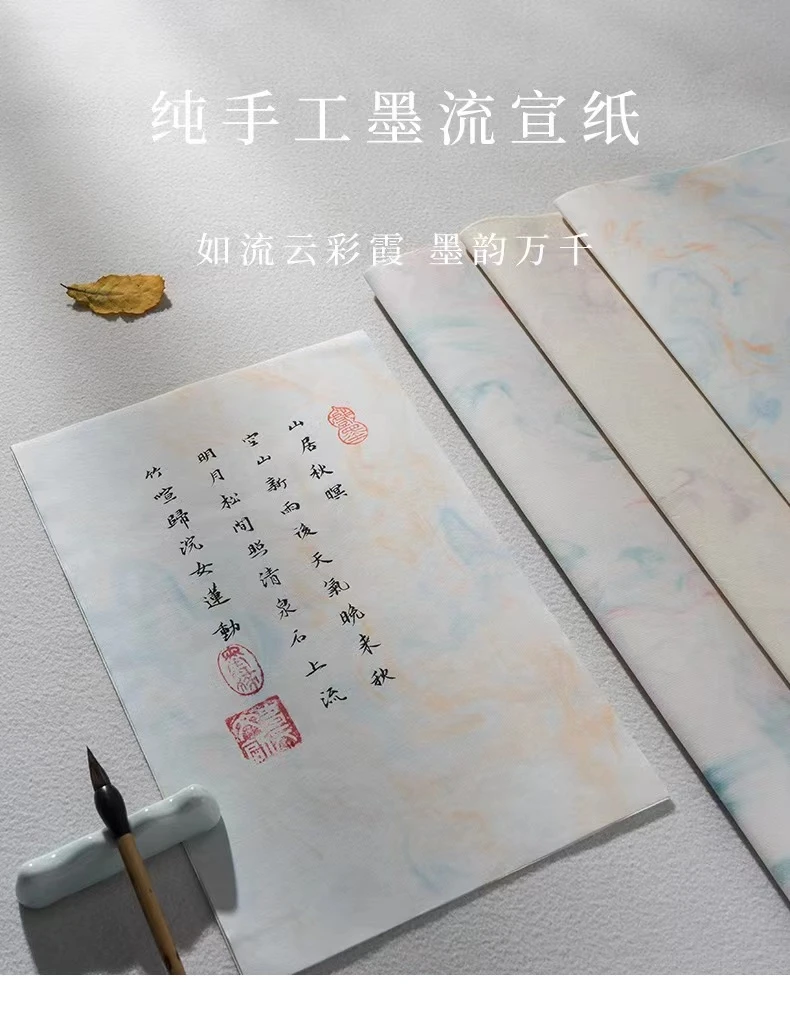 纯手工墨流宣纸
如流云彩霞 墨韵万千
山居秋暝
空山新雨後天氣晚来秋
明月松間照清泉石上流
竹喧歸浣女蓮動